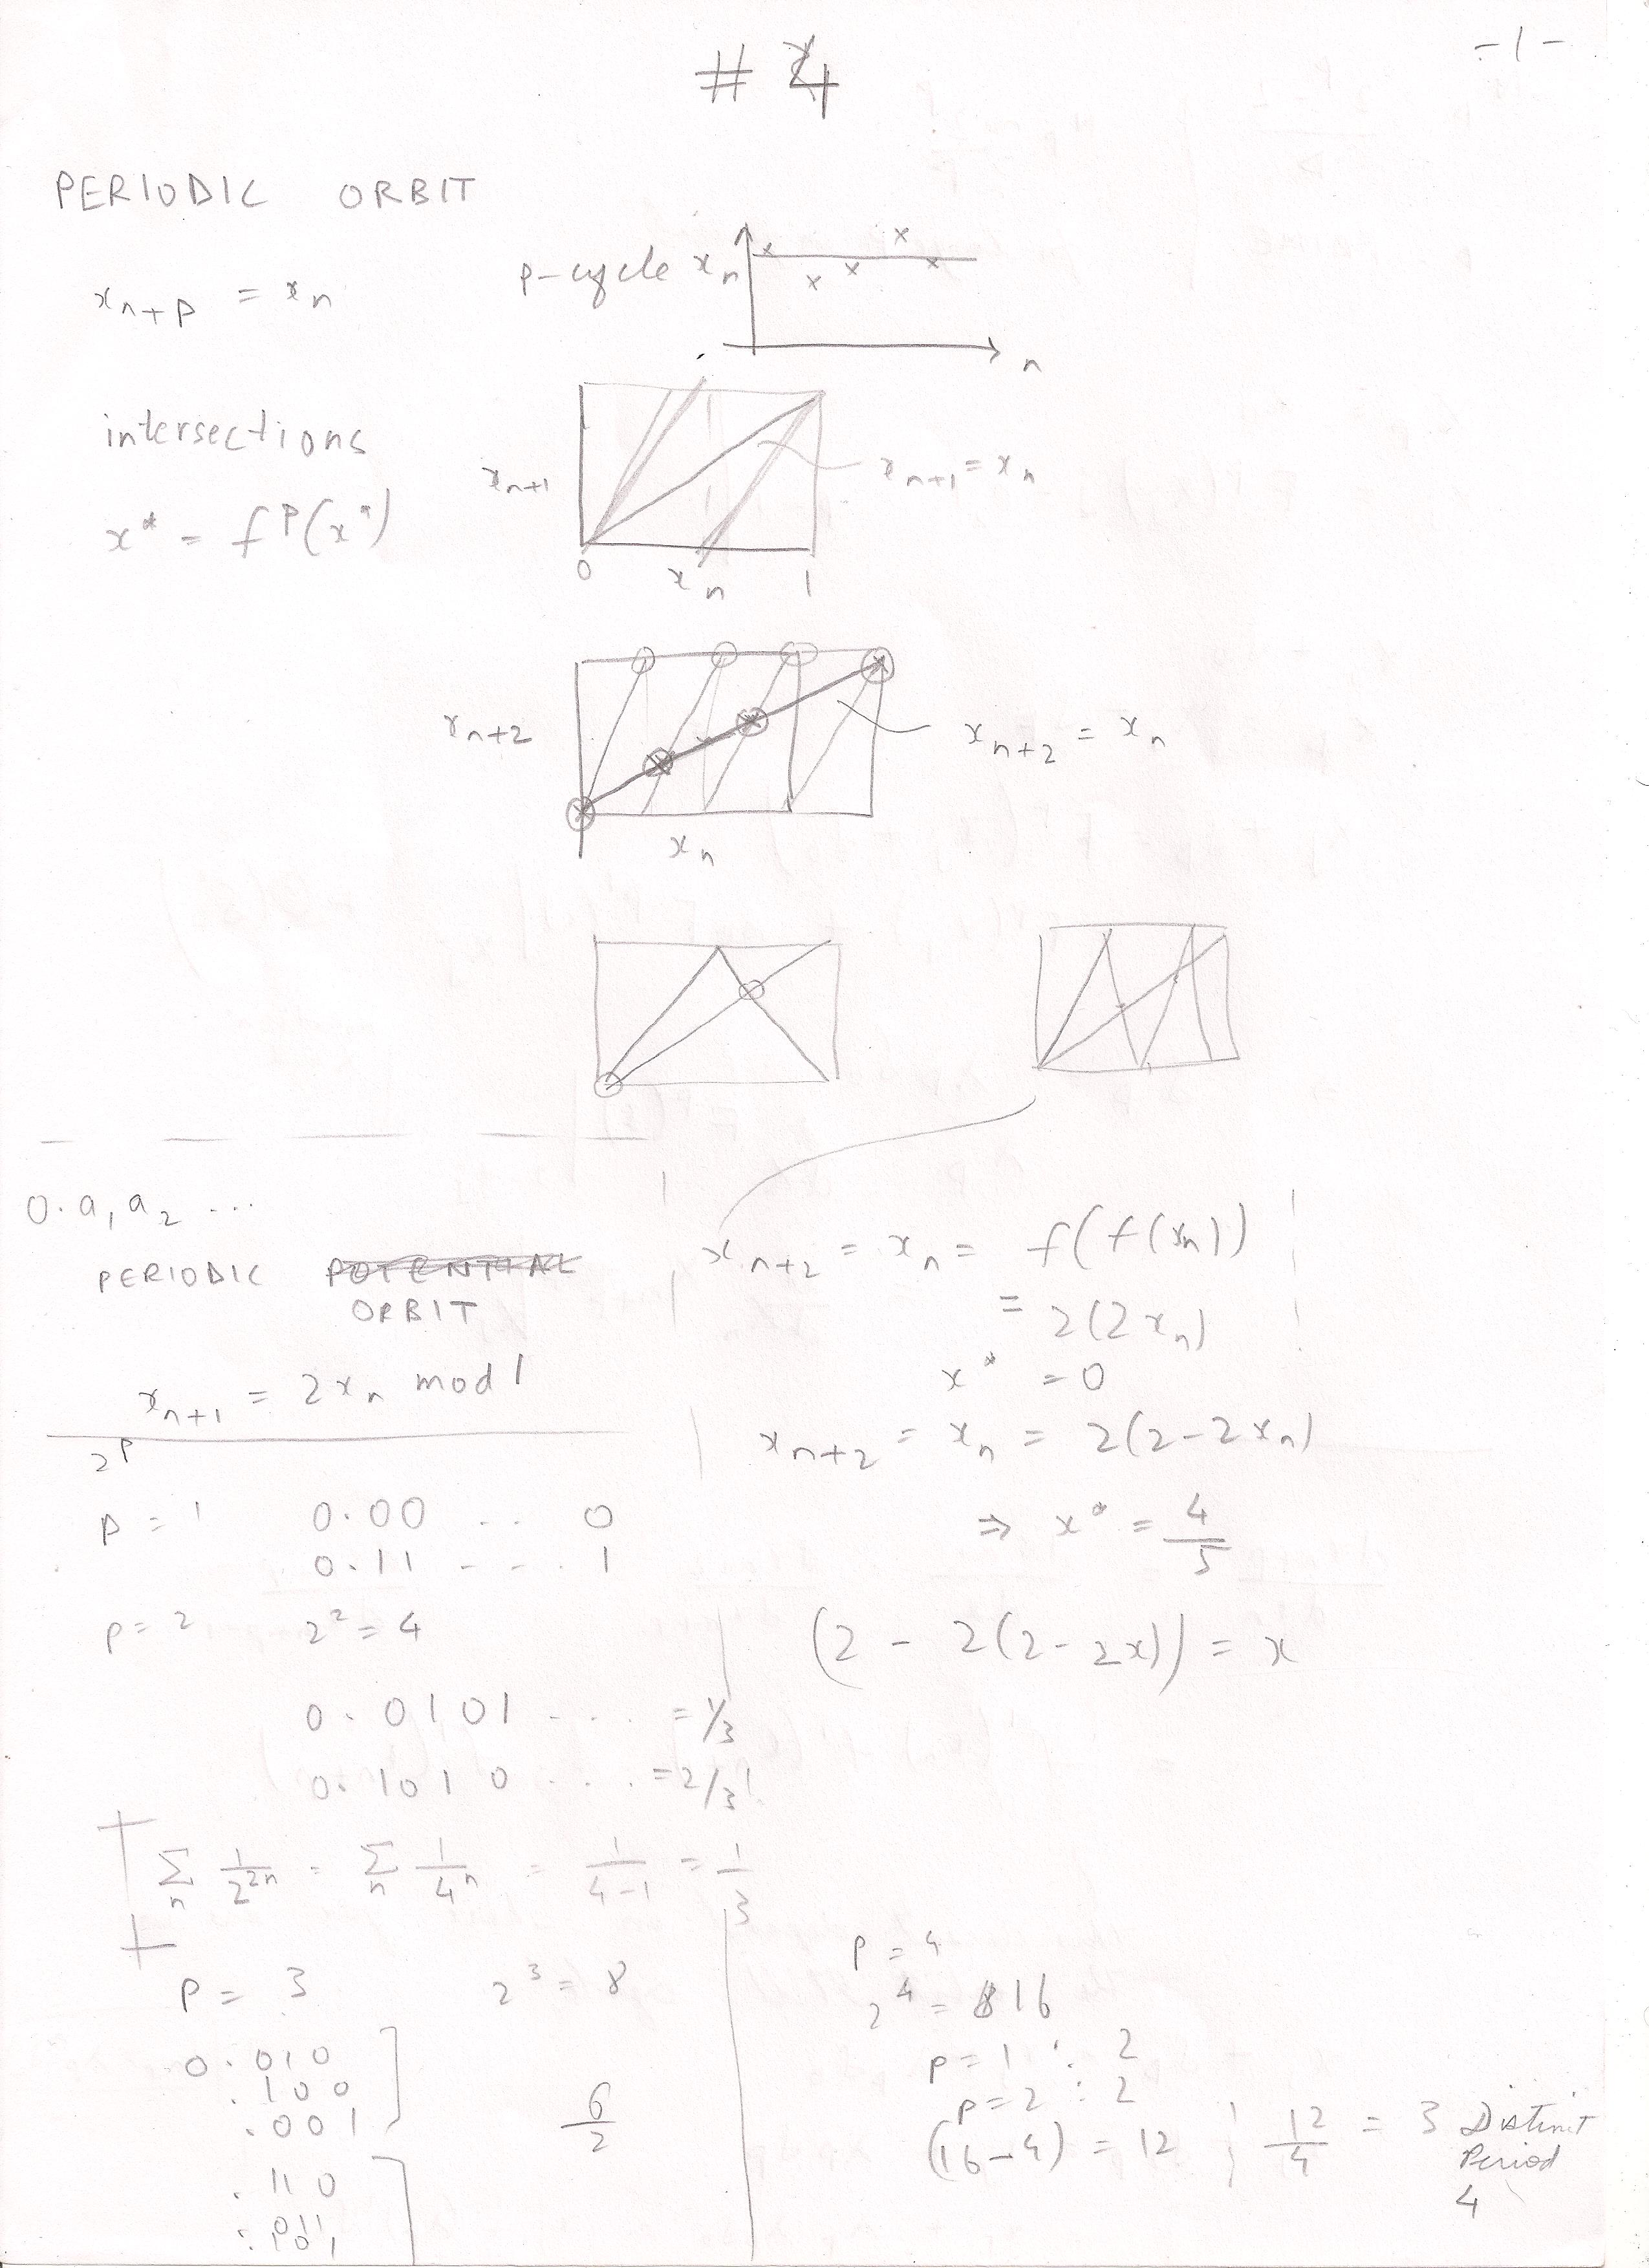 # 4
- 1 -
PERIODIC ORBIT
x_{n+p} = x_n
p-cycle x_n
n
intersections
x* = f^p(x*)
x_{n+1}
x_{n+1} = x_n
0 x_n 1
x_{n+2}
x_{n+2} = x_n
x_n
0.a_1 a_2 ...
PERIODIC POTENTIAL
ORBIT
x_{n+1} = 2x_n mod 1
2^p
p = 1 0.00 .. 0
0.11 - - . 1
p = 2 2^2 = 4
0.0101 - . . = 1/3
0.1010 . . . = 2/3
Σ_n 1/2^{2n} = Σ_n 1/4^n = 1/(4-1) = 1/3
P = 3 2^3 = 8
0.010
.100
.001
6/2
.110
.011
.101
x_{n+2} = x_n = f(f(x_n))
= 2(2x_n)
x* = 0
x_{n+2} = x_n = 2(2-2x_n)
⇒ x* = 4/5
(2 - 2(2-2x)) = x
P = 4
2^4 = 8 16
p = 1 : 2
p = 2 : 2
(16-4) = 12 ; 12/4 = 3 Distinct
Period
4